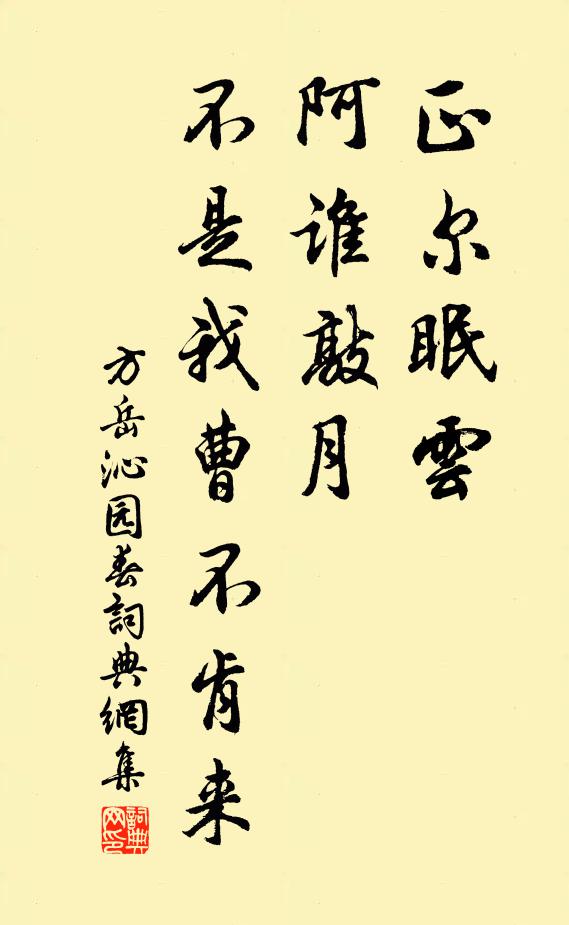 正尔眠雲
阿谁敲月
不是我曹不肯来
方岳沁园春詞典網集
詞典
网印